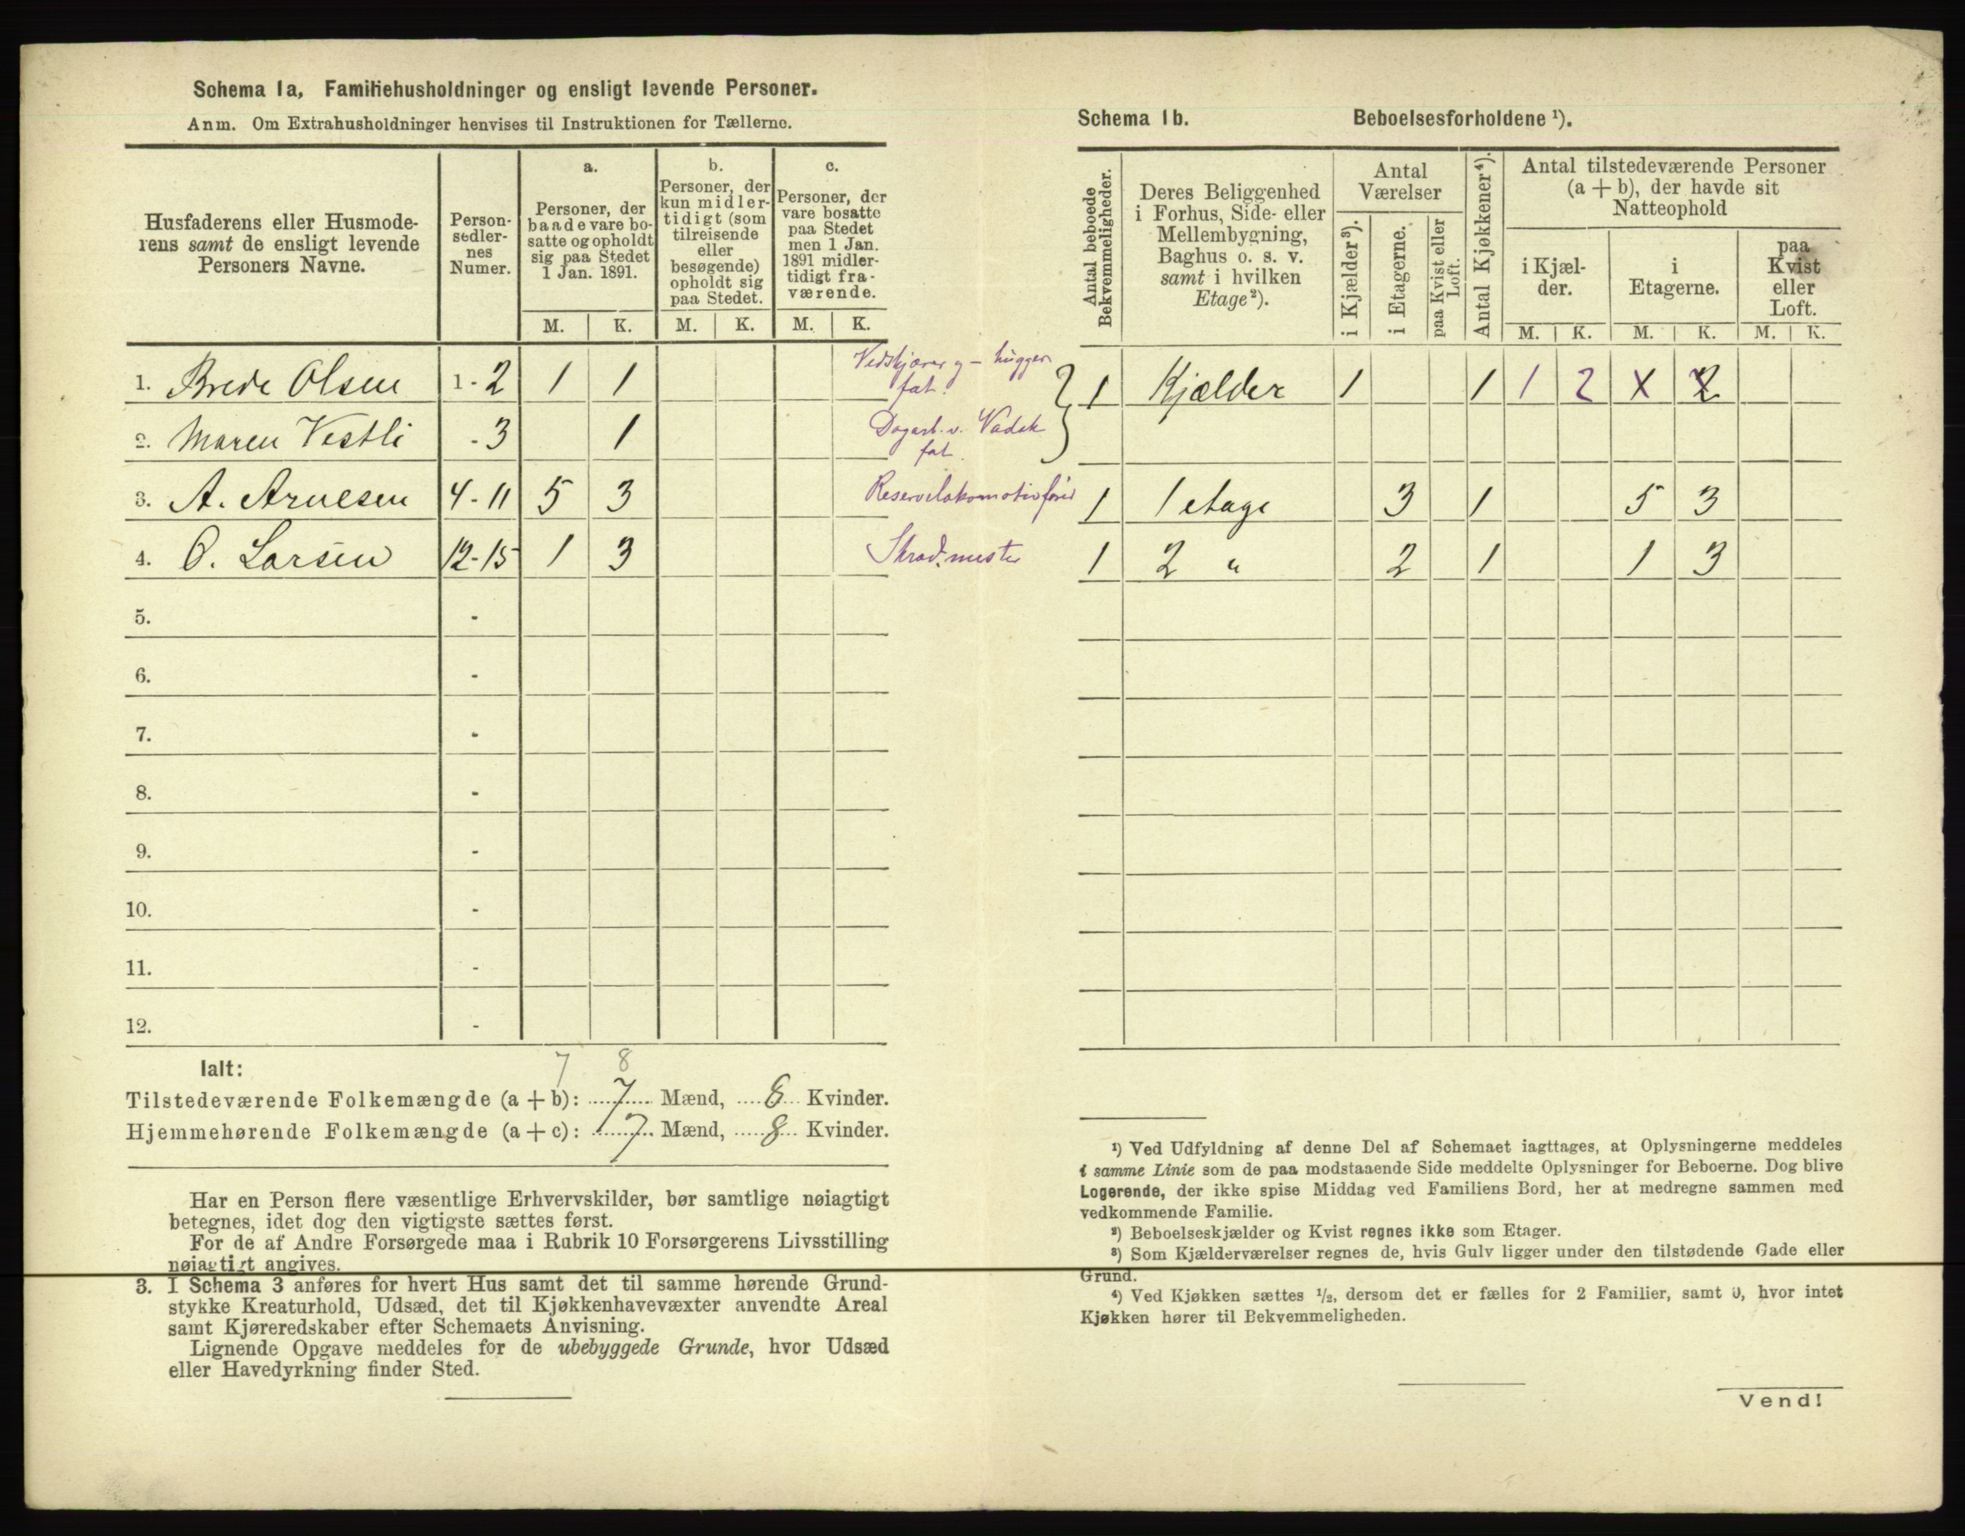 Schema 1a, Familiehusholdninger og ensligt levende Personer.
Anm. Om Extrahusholdninger henvises til Instruktionen for Tællerne.
Husfaderens eller Husmode-
rens samt de ensligt levende
Personers Navne.
Person-
sedler-
nes
Numer.
a.
Personer, der
baade vare bo-
satte og opholdt
sig paa Stedet
1 Jan. 1891.
b.
Personer, der
kun midler-
tidigt (som
tilreisende
eller
besøgende)
opholdt sig
paa Stedet.
c.
Personer, der
vare bosatte
paa Stedet
men 1 Jan.
1891 midler-
tidigt fra-
værende.
M. K. M. K. M. K.
1. Brede Olsen 1 - 2 1 1 Vedskjærer g - hugger
fat.
2. Maren Vestli - 3 1 Dagarb. v. Vadsk
fat.
3. A. Arnesen 4 - 11 5 3 Reservelokomotivfører
4. O. Larsen 12 - 15 1 3 Skrad.mester
5. -
6. -
7. -
8. -
9. -
10. -
11. -
12. -
7 8
Ialt:
Tilstedeværende Folkemængde (a + b): 7 Mænd, 8 Kvinder.
Hjemmehørende Folkemængde (a + c): 7 Mænd, 8 Kvinder.
Har en Person flere væsentlige Erhvervskilder, bør samtlige nøiagtigt
betegnes, idet dog den vigtigste sættes først.
For de af Andre Forsørgede maa i Rubrik 10 Forsørgerens Livsstilling
nøiagtigt angives.
3. I Schema 3 anføres for hvert Hus samt det til samme hørende Grund-
stykke Kreaturhold, Udsæd, det til Kjøkkenhavevæxter anvendte Areal
samt Kjøreredskaber efter Schemaets Anvisning.
Lignende Opgave meddeles for de ubebyggede Grunde, hvor Udsæd
eller Havedyrkning finder Sted.
Schema 1b. Beboelsesforholdene ¹).
Antal beboede
Bekvemmeligheder.
Deres Beliggenhed
i Forhus, Side- eller
Mellembygning,
Baghus o. s. v.
samt i hvilken
Etage²).
Antal
Værelser
i Kjælder³).
i Etagerne.
paa Kvist eller
Loft.
Antal Kjøkkener⁴).
Antal tilstedeværende Personer
(a + b), der havde sit
Natteophold
i Kjæl-
der.
i
Etagerne.
paa
Kvist
eller
Loft.
M. K. M. K. M. K.
1 Kjælder 1 1 1 2 X 2
1 1 etage 3 1 5 3
1 2 " 2 1 1 3
¹) Ved Udfyldning af denne Del af Schemaet iagttages, at Oplysningerne meddeles
i samme Linie som de paa modstaaende Side meddelte Oplysninger for Beboerne. Dog blive
Logerende, der ikke spise Middag ved Familiens Bord, her at medregne sammen med
vedkommende Familie.
²) Beboelseskjælder og Kvist regnes ikke som Etager.
³) Som Kjælderværelser regnes de, hvis Gulv ligger under den tilstødende Gade eller
Grund.
⁴) Ved Kjøkken sættes ½, dersom det er fælles for 2 Familier, samt 0, hvor intet
Kjøkken hører til Bekvemmeligheden.
Vend!